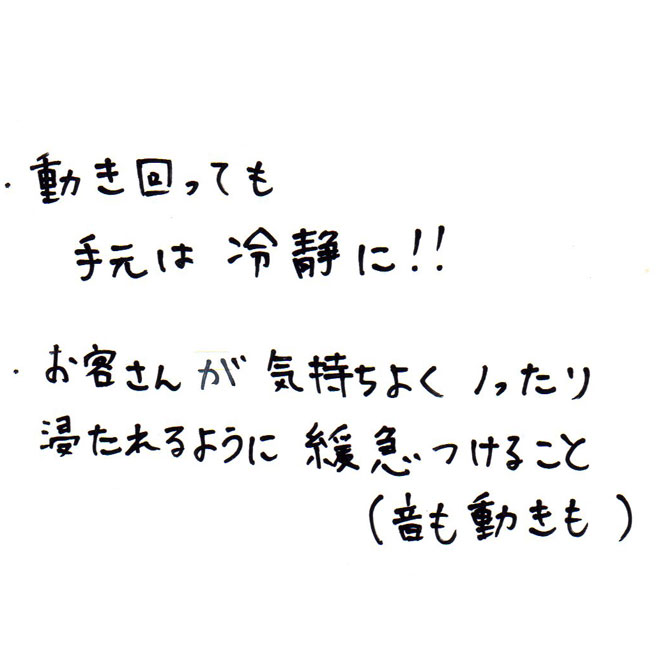 ・動き回っても
手元は 冷静に!!
・お客さんが 気持ちよく ノったり
浸たれるように 緩急つけること
(音も動きも)